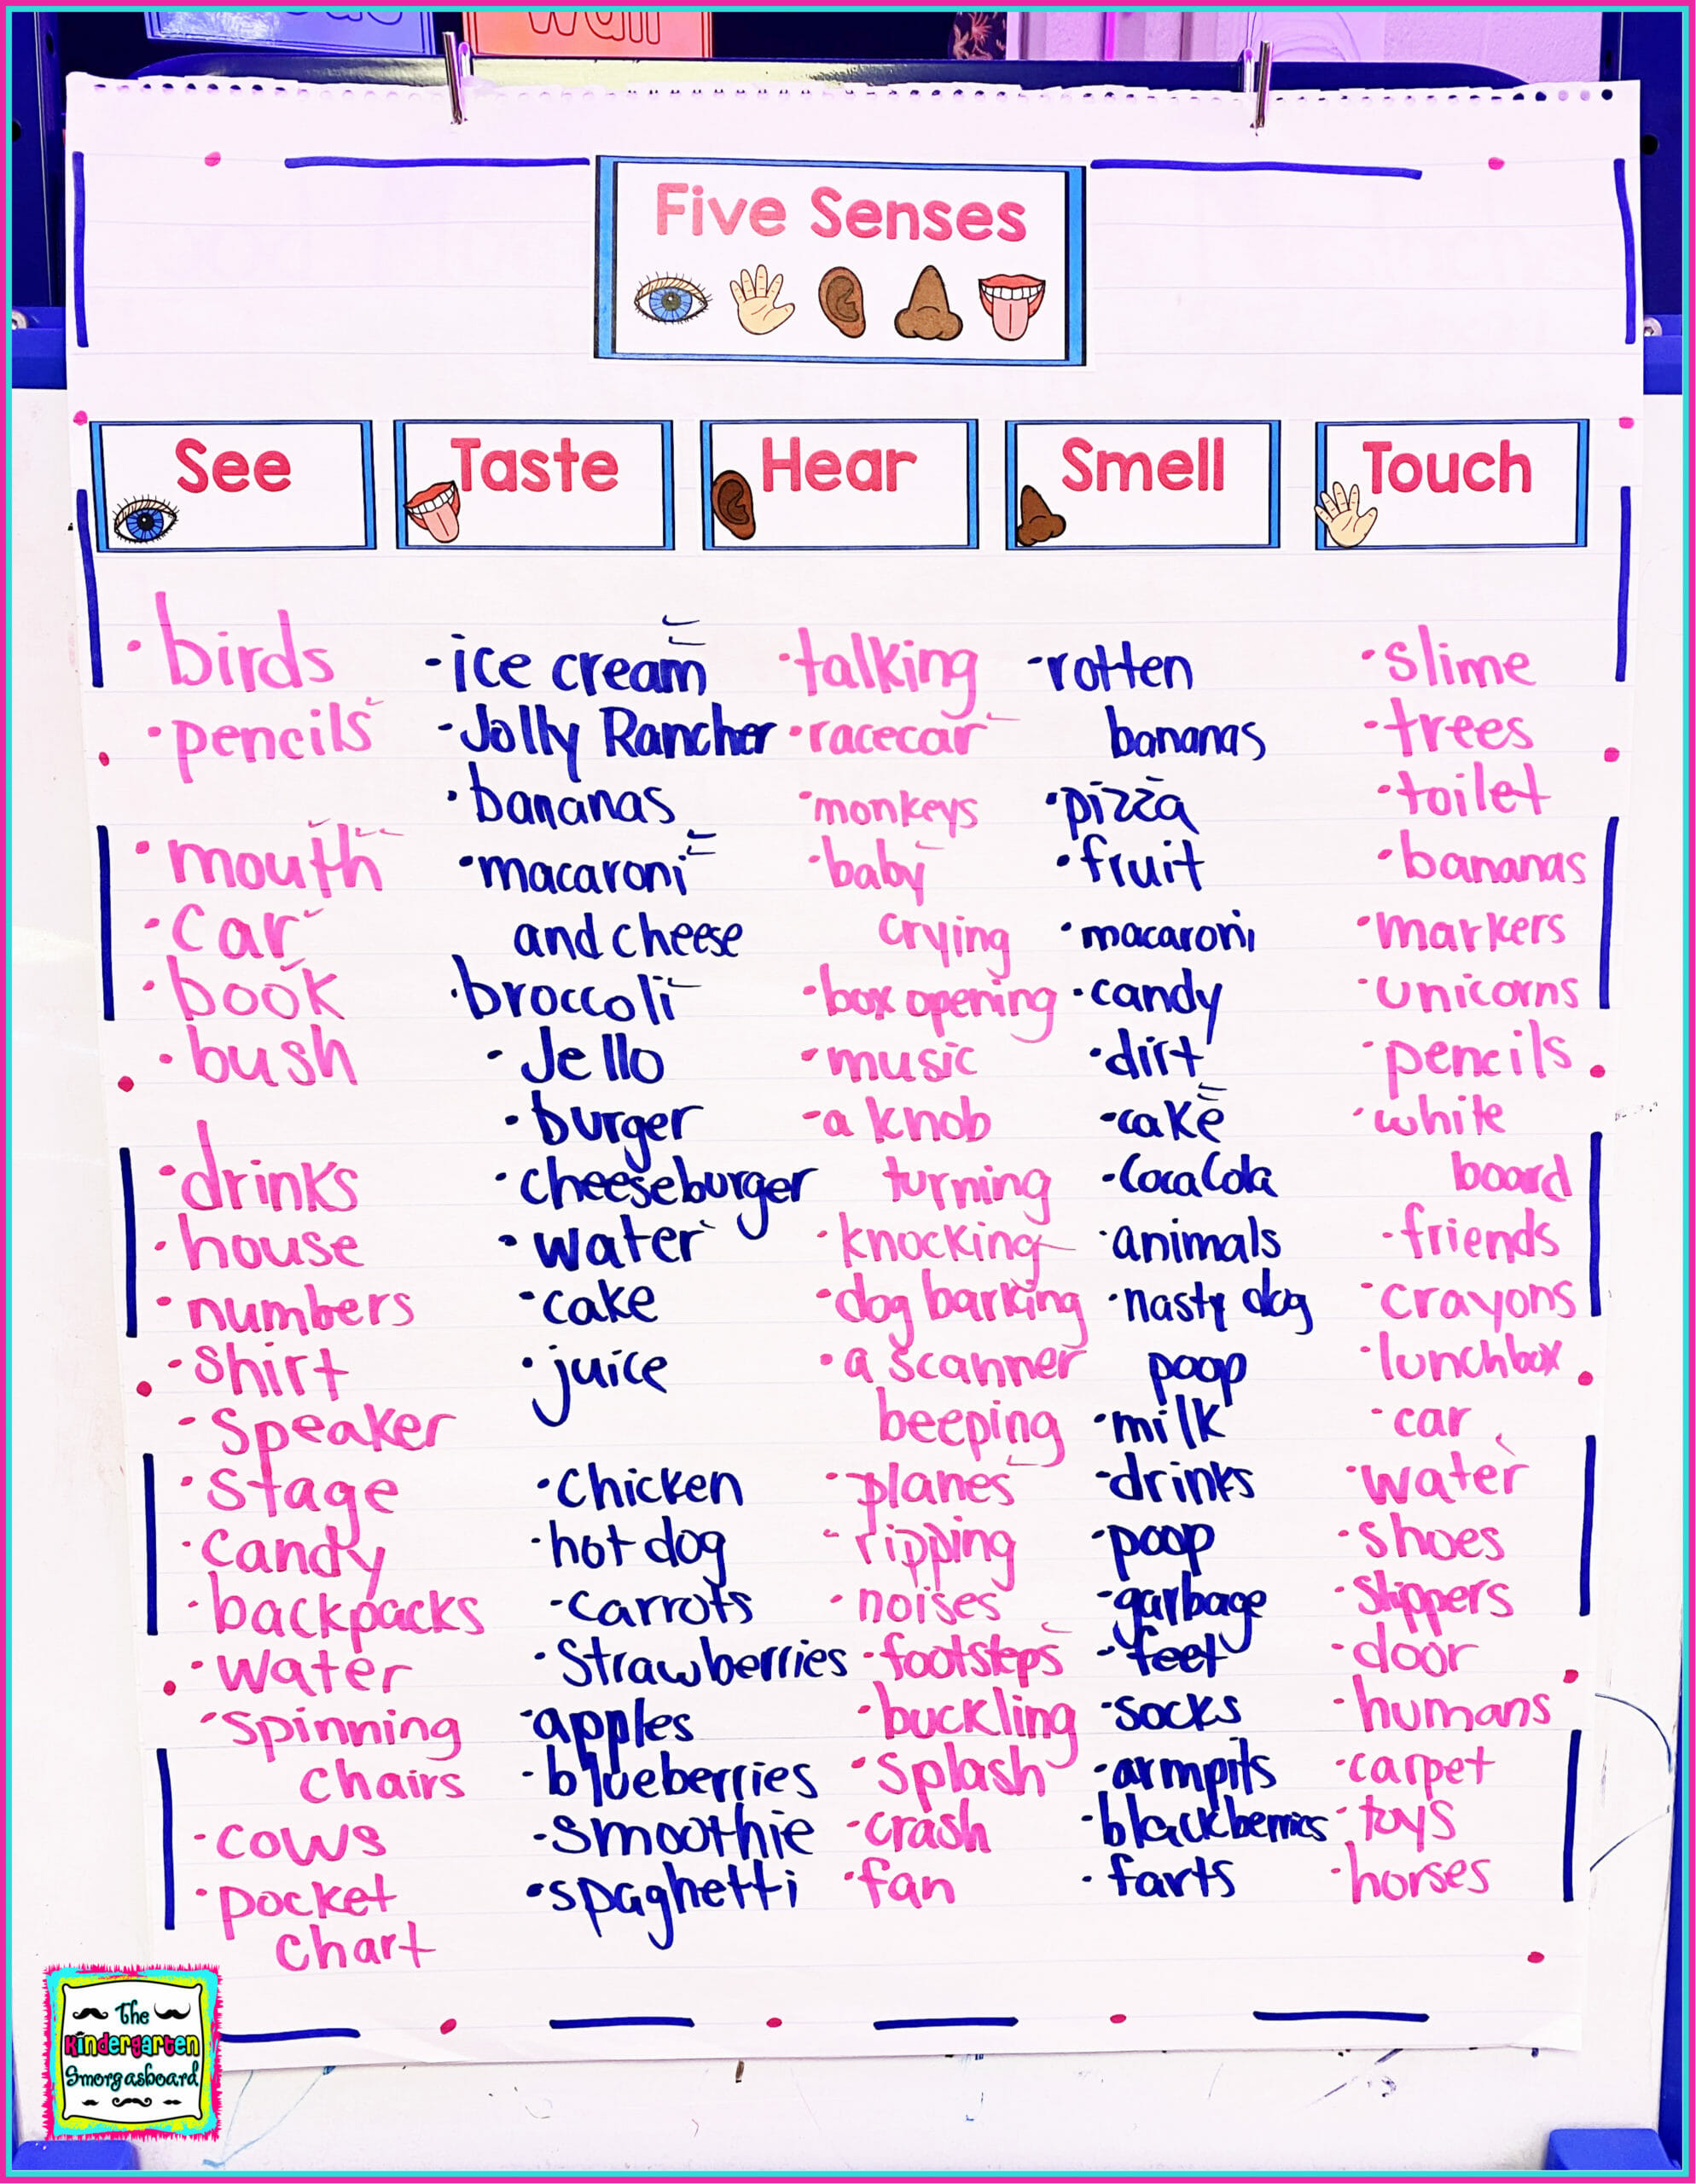 wall
Five Senses
See
Taste
Hear
Smell
Touch
·birds
·pencils
·mouth
·car
·book
·bush
·drinks
·house
·numbers
·shirt
·speaker
·stage
·candy
·backpacks
·water
·spinning
chairs
·cows
·pocket
chart
-ice cream
-Jolly Rancher
·bananas
·macaroni
and cheese
·broccoli
-Jello
·burger
·cheeseburger
·water
·cake
·juice
·chicken
·hot dog
-carrots
·Strawberries
·apples
·blueberries
-smoothie
·spaghetti
·talking
·racecar
·monkeys
·baby
crying
·box opening
·music
-a knob
turning
·knocking
·dog barking
·a scanner
beeping
·planes
-ripping
·noises
·footsteps
·buckling
·splash
·crash
·fan
-rotten
bananas
·pizza
·fruit
·macaroni
·candy
·dirt
-cake
-Coca Cola
·animals
·nasty dog
poop
·milk
-drinks
·poop
-garbage
-feet
·socks
·armpits
·blackberries
·farts
·slime
·trees
·toilet
·bananas
·markers
·unicorns
·pencils
·white
board
·friends
·crayons
·lunchbox
·car
·water
·shoes
·slippers
·door
·humans
·carpet
·toys
·horses
The
Kindergarten
Smorgasboard